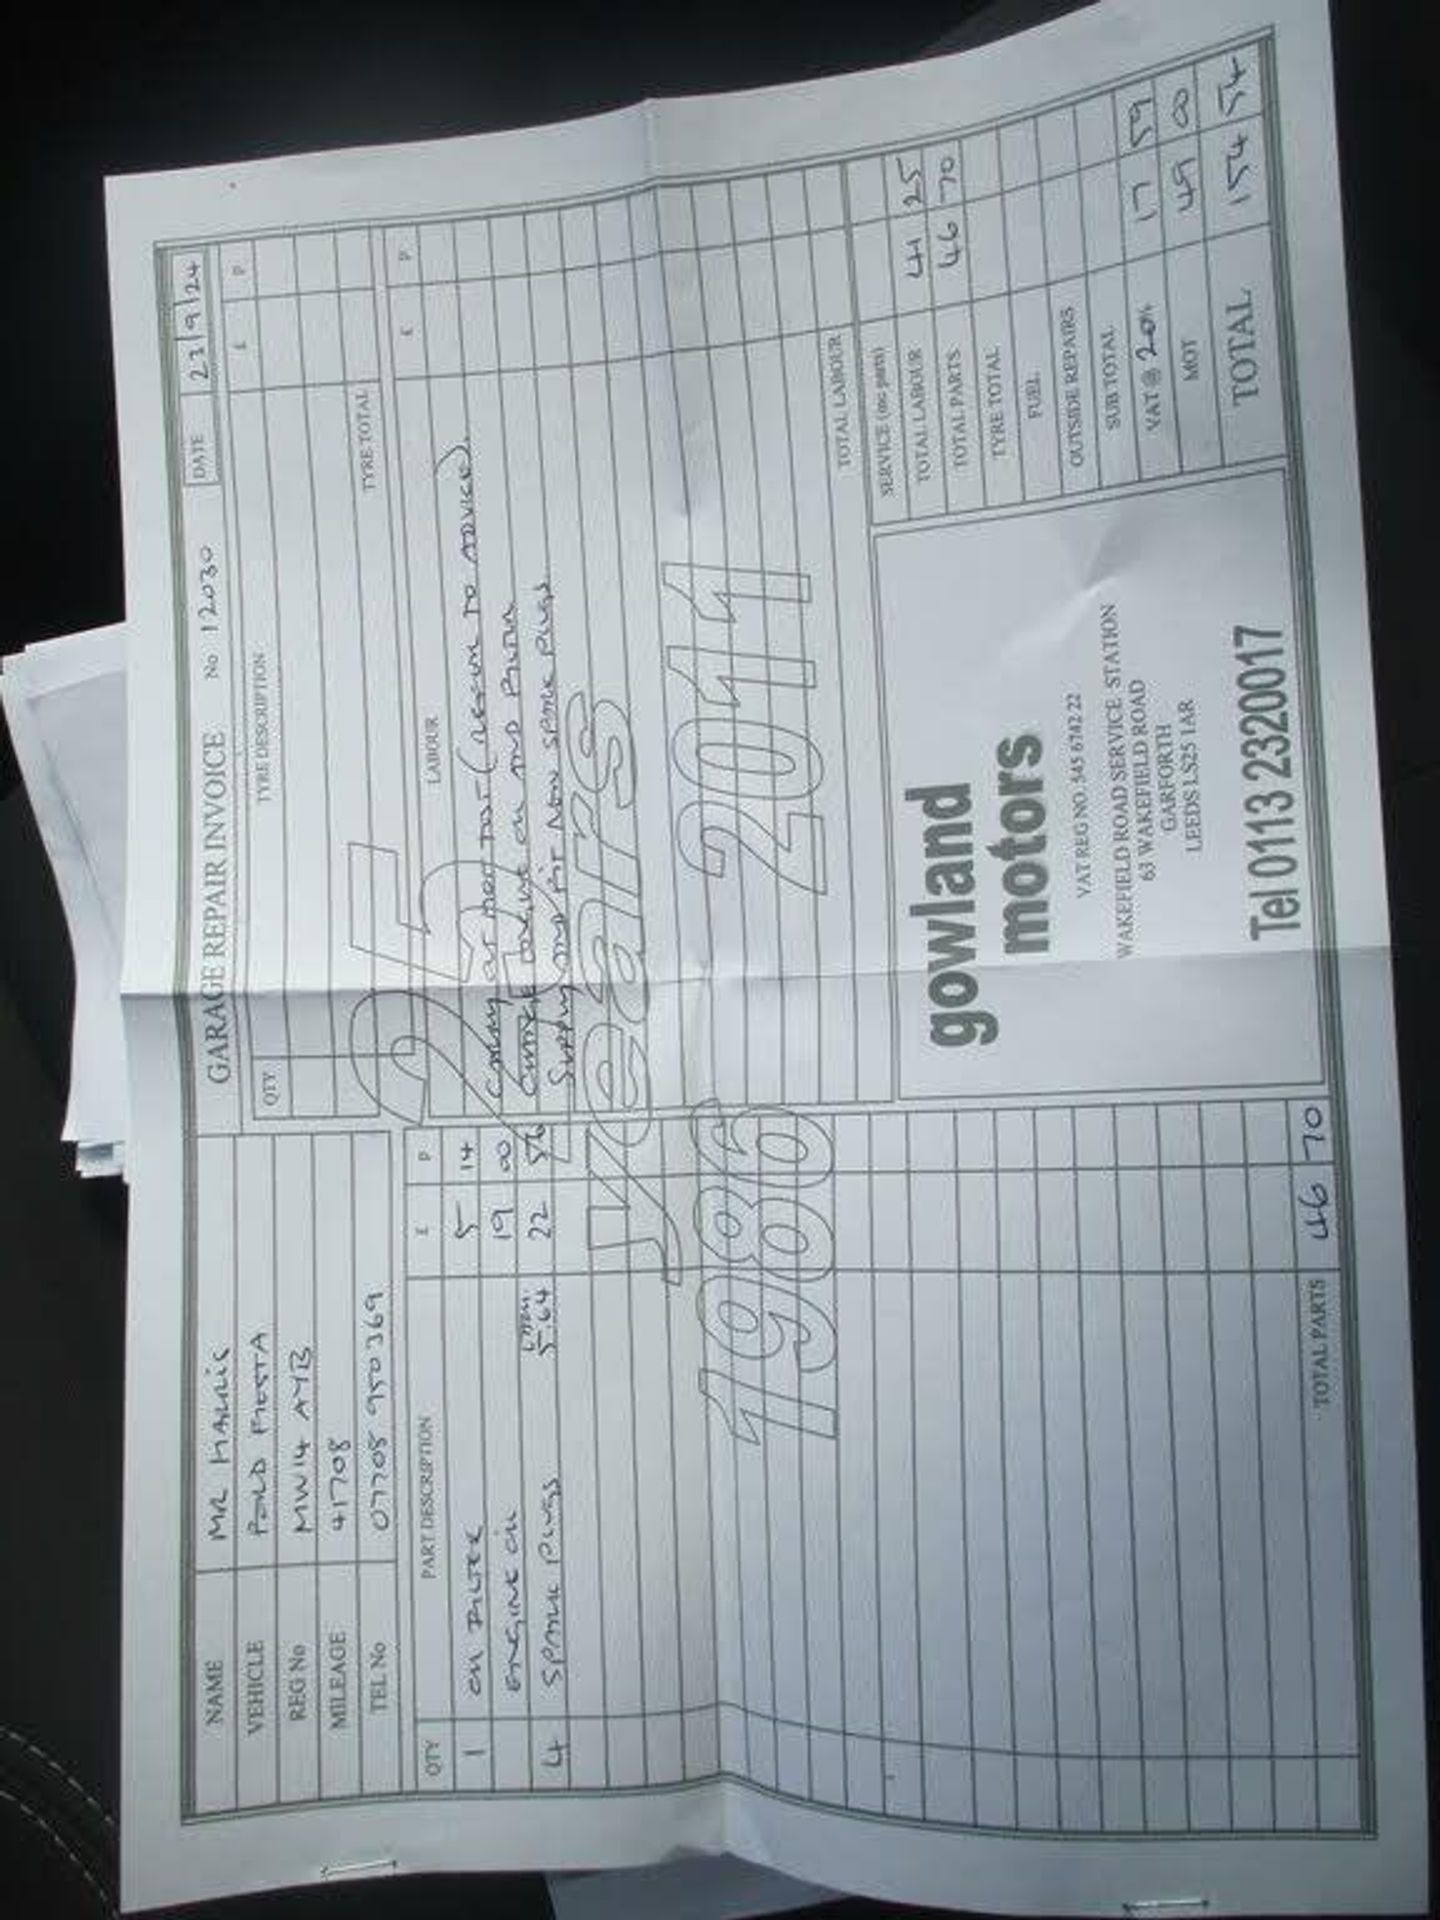 GARAGE REPAIR INVOICE No 12030 DATE 23/9/24
NAME MR HARRIS
VEHICLE FORD FIESTA
REG No MW14 AYB
MILEAGE 41708
TEL No 07708 950369
QTY TYRE DESCRIPTION £ P
TYRE TOTAL
QTY PART DESCRIPTION £ P
1 OIL FILTER 5 14
ENGINE OIL 19 00
4 SPARK PLUGS 5.64 22 56
TOTAL PARTS 46 70
LABOUR £ P
CARRY OUT MOT TEST (REFER TO ADVICE).
CHANGE ENGINE OIL AND FILTER
SUPPLY AND FIT NEW SPARK PLUGS
TOTAL LABOUR
25
years
1986 2011
gowland
motors
VAT REG NO. 545 6742 22
WAKEFIELD ROAD SERVICE STATION
63 WAKEFIELD ROAD
GARFORTH
LEEDS LS25 1AR
Tel 0113 2320017
SERVICE (inc parts)
TOTAL LABOUR 41 25
TOTAL PARTS 46 70
TYRE TOTAL
FUEL
OUTSIDE REPAIRS
SUB TOTAL
VAT @ 20% 17 59
MOT 49 00
TOTAL 154 54